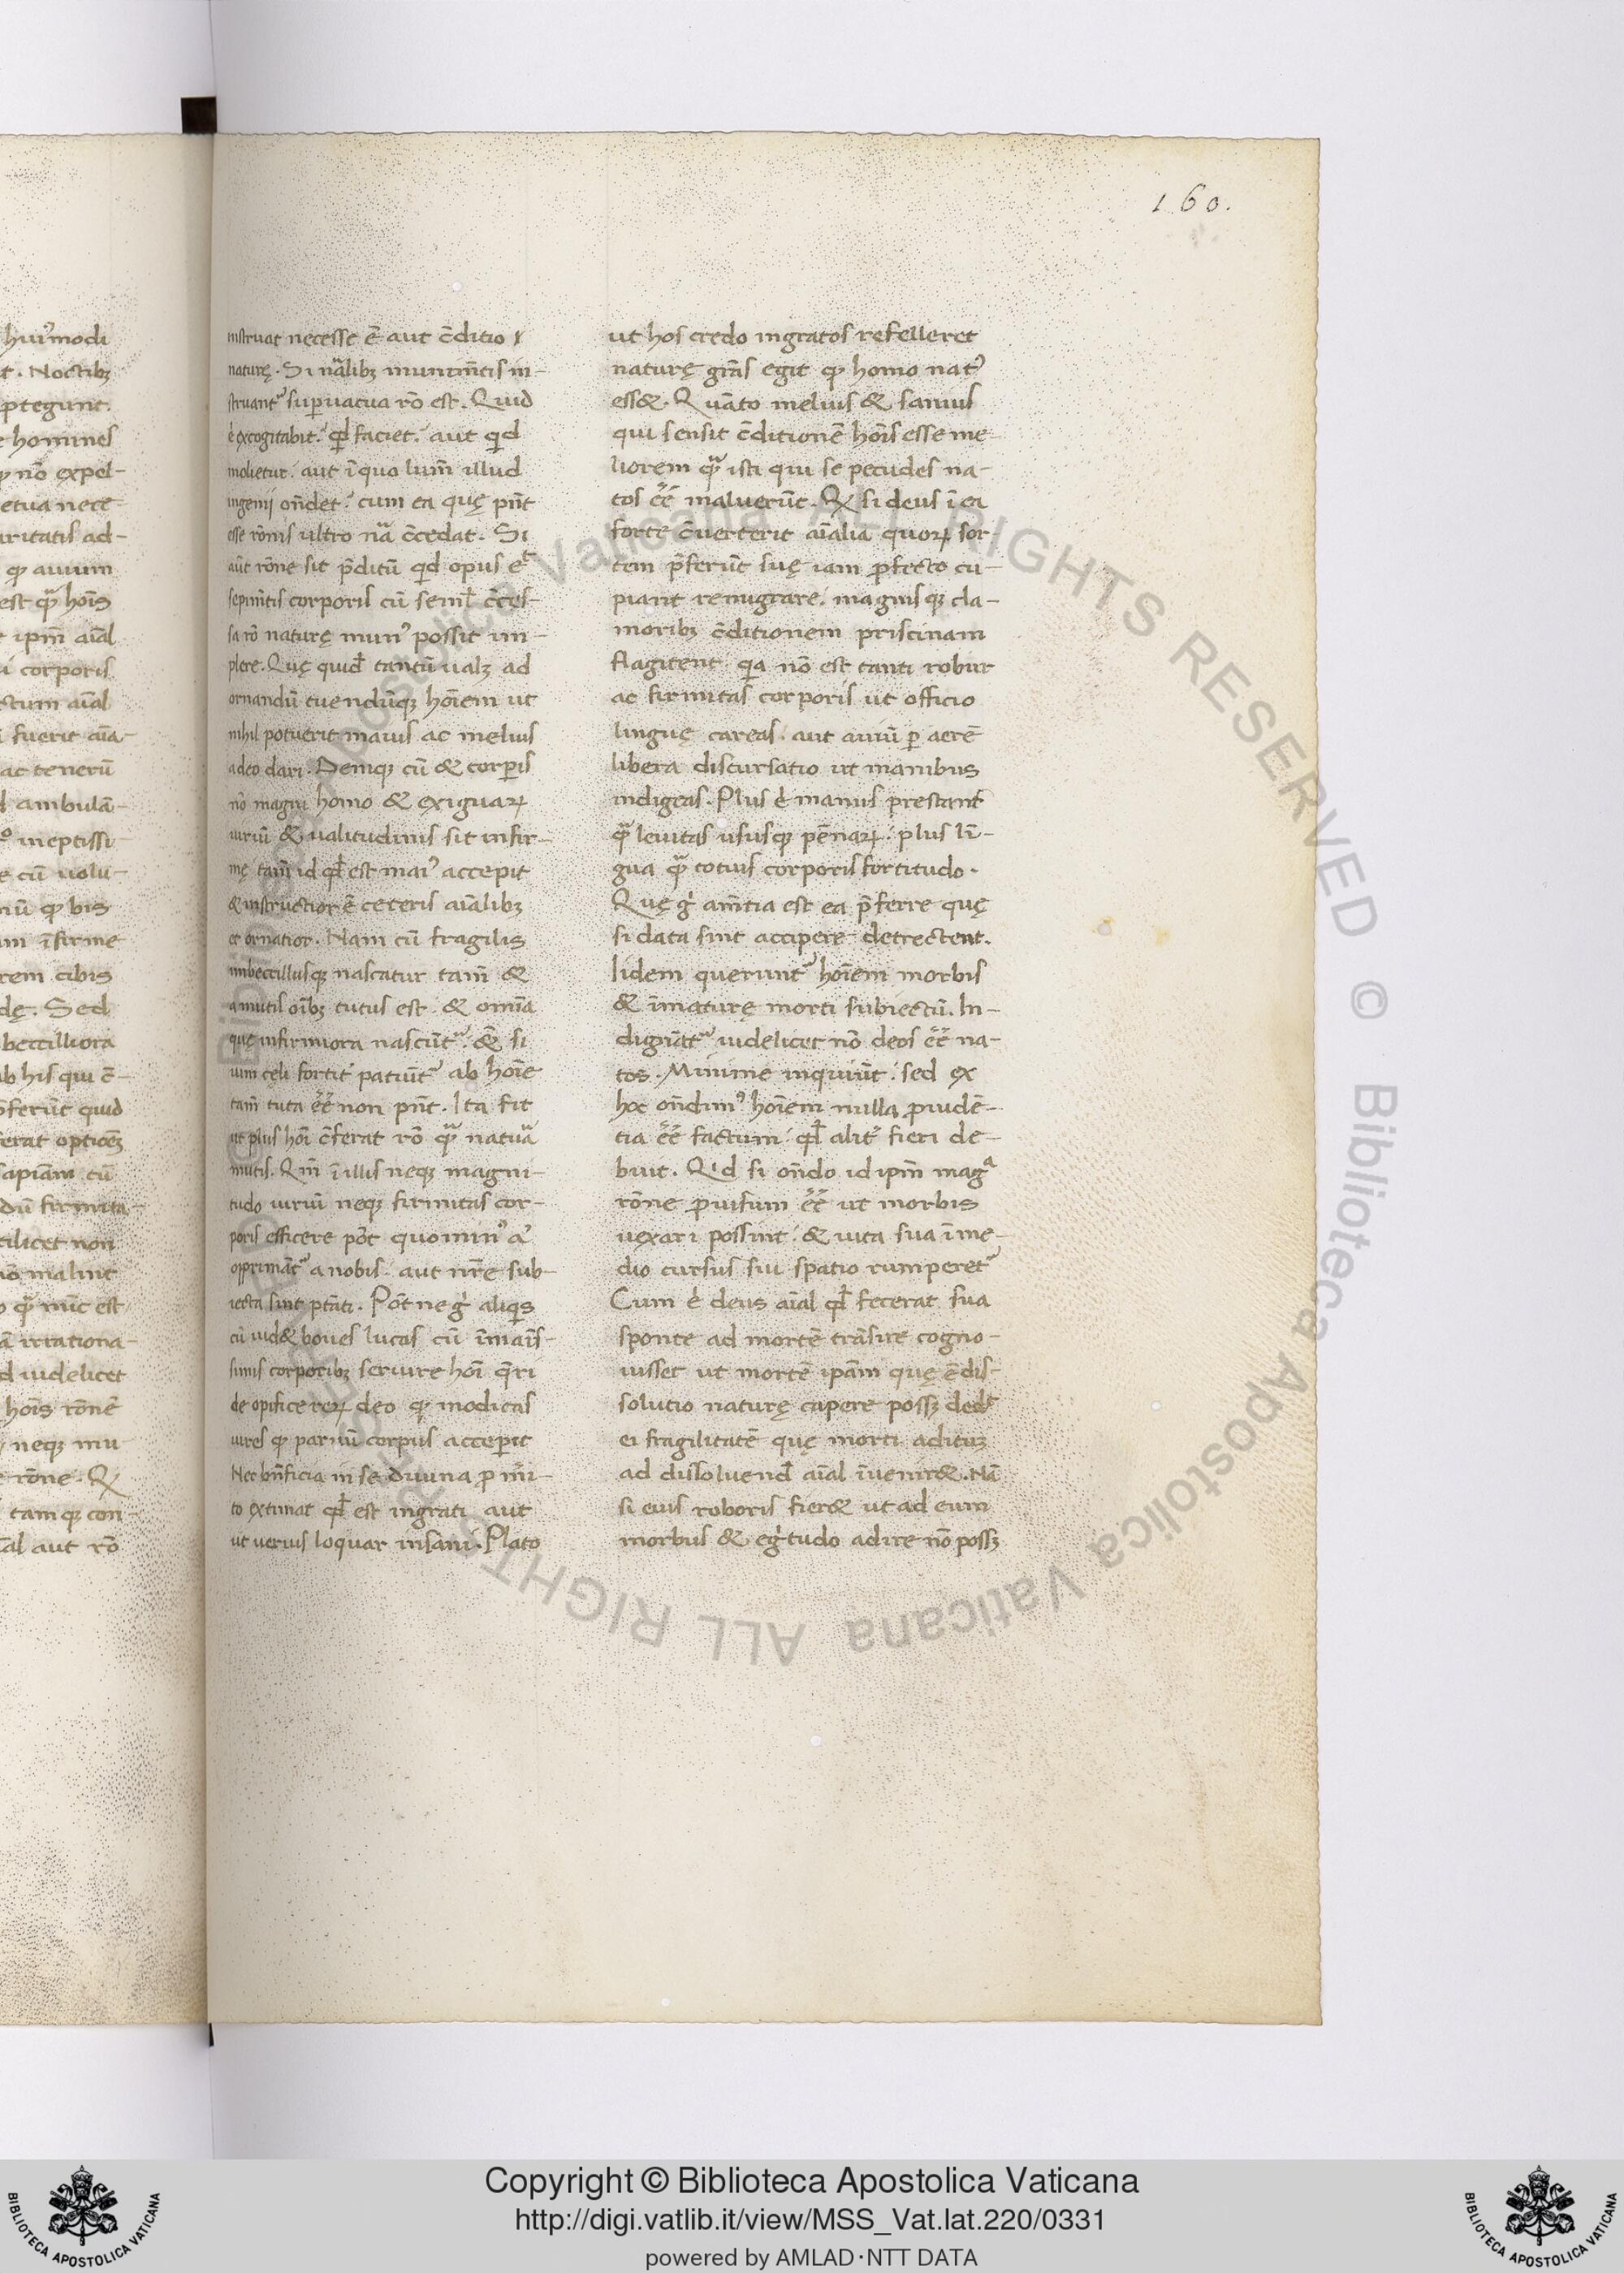 160.
huiꝰmodi
t. Noctibꝫ
ptegunt.
homineſ
nō expel-
etua nece-
aritatiſ ad-
ꝙ auium
est qᷓ hoīſ
ipm̄ aīal
corporiſ
ctum aīal
fuerit aīa-
ac tenerū
ambulā-
ineptissi-
cū uolu-
nū ꝙ bis
īfirme
rem cibis
dę. Sed
becilliora
ab hiſ qui c̄-
p̄ferūt quid
ſapiām cū
dū firmita-
ſcilicet non
malint
qᷓ nūc est
irrationa-
d uidelicet
hoīſ rōne
neqꝫ mu
rōne. Ex
tamqꝫ con-
aut rō
instruat necesse ē aut c̄ditio
naturę. Si nālibꝫ munimn̄tis in-
struantᷣ ſupuacua rō est. Quid
ė excogitabit. qd̄ faciet. aut qid
molietur. aut ī quo lum̄ illud
ingenii on̄det. cum ea quę pn̄t
esse rōnis ultro nā c̄cedat. Si
aūt rōne sit p̄ditū qid opuſ eᷤt
ſepimn̄tiſ corporiſ cū ſeml̄ c̄ceſ-
ſa rō naturę munꝰ possit im-
plere. Quę quid̄ tantū ualꝫ ad
ornandū tuendūqꝫ hoīem ut
nihil potuerit maiuſ ac meliuſ
a deo dari. Deniqꝫ cū & corp̄is
nō magni homo & exiguaꝝ
uiriū & ualitudiniſ sit infir-
mę tam̄ id qd̄ est maiꝰ accepit
& instructior ē ceteriſ aīalibꝫ
et ornatior. Nam cū fragiliſ
imbecilluſqꝫ nascatur tam̄ &
a mutiſ oībꝫ tutus est & omīa
quę infirmiora nascūtᷣ & si
uim celi fortit̄ patiūtᷣ ab hoīe
tam̄ tuta eē non pn̄t. Ita fit
ut pluſ hoī c̄ferat rō qᷓ natuᷓ
mutiſ. Qm̄ ī illiſ neqꝫ magni-
tudo uiriū neqꝫ firmitaſ cor-
poriſ efficere pōt quominꝰ aꝰ
opprimātᷣ a nobiſ. aut nr̄e ſub-
iecta ſint ptāti. Pōt ne gͥ aliqiſ
cū uid& boueſ lucaſ cū īmaīſ-
ſimiſ corporibꝫ ſeruire hoī qr̄i
de opifice reꝝ deo ꝙ modicaſ
uireſ ꝙ paruū corpuſ acceperit
Nec bn̄ficia in ſe diuina p m̄i-
to extimat qd̄ est ingrati aut
ut ueriuſ loquar inſani. Plato
ut hoſ credo ingratoſ refelleret
naturę gr̄aſ egit ꝙ homo natꝰ
ess&. Quāto meliuſ & ſaniuſ
qui ſenſit c̄ditionē hoīſ esse me-
liorem qᷓ isti qui ſe pecudeſ na-
toſ eē maluerūt. Ꝙ ſi deuſ ī ea
forte c̄uerterit aīalia quoꝝ ſor-
tem p̄ferūt ſuę iam pfecto cu-
piant remigrare. magniſqꝫ cla-
moribꝫ c̄ditionem priſtinam
flagitent qa nō est tanti robur
ac firmitaſ corporiſ ut officio
linguę careaſ. aut auiū p aerē
libera diſcurſatio ut manibus
indigeaſ. Pluſ ė manuſ prestant
qᷓ leuitaſ uſuſqꝫ pēnaꝝ. pluſ lī-
gua qᷓ totiuſ corporiſ fortitudo.
Quę gͥ am̄tia est ea p̄ferre quę
ſi data ſint accipere detrectent.
Iidem queruntᷣ hoīem morbiſ
& īmaturę morti ſubiectū. In-
dignātᷣ uidelicet nō deoſ eē na-
toſ. Minime inquiūt. ſed ex
hoc on̄dimꝰ hoīem nulla prouidē-
tia eē factum qd̄ alitͥ fieri de-
buit. Qid ſi on̄do id ipm̄ magᷓ
rōne prouiſum eē ut morbiſ
uexari possint & uita ſua ī me-
dio curſuſ ſui ſpatio rumperetᷣ
Cum ė deuſ aīal qd̄ fecerat ſua
ſponte ad mortē trāſire cogno-
uisset ut mortē ipām quę ē diſ-
ſolutio naturę capere possꝫ dedͭ
ei fragilitatē quę morti aditū
ad diſſoluend̄ aīal īuenir&. Nā
ſi eiuſ roboriſ fier& ut ad eum
morbuſ & egͥtudo adire nō possꝫ
Copyright © Biblioteca Apostolica Vaticana
http://digi.vatlib.it/view/MSS_Vat.lat.220/0331
powered by AMLAD·NTT DATA
BIBLIOTECA APOSTOLICA VATICANA
BIBLIOTECA APOSTOLICA VATICANA